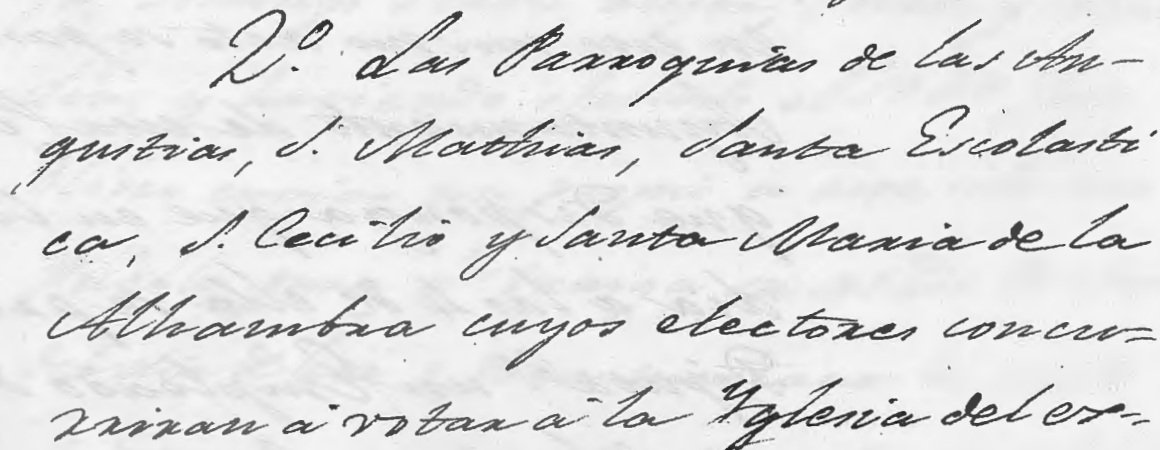 2.º Las Parroquias de las An-
gustias, S. Mathias, Santa Escolasti
ca, S. Cecilio y Santa Maria de la
Alhambra cuyos electores concu-
rriran á votar á la Yglesia del ex-